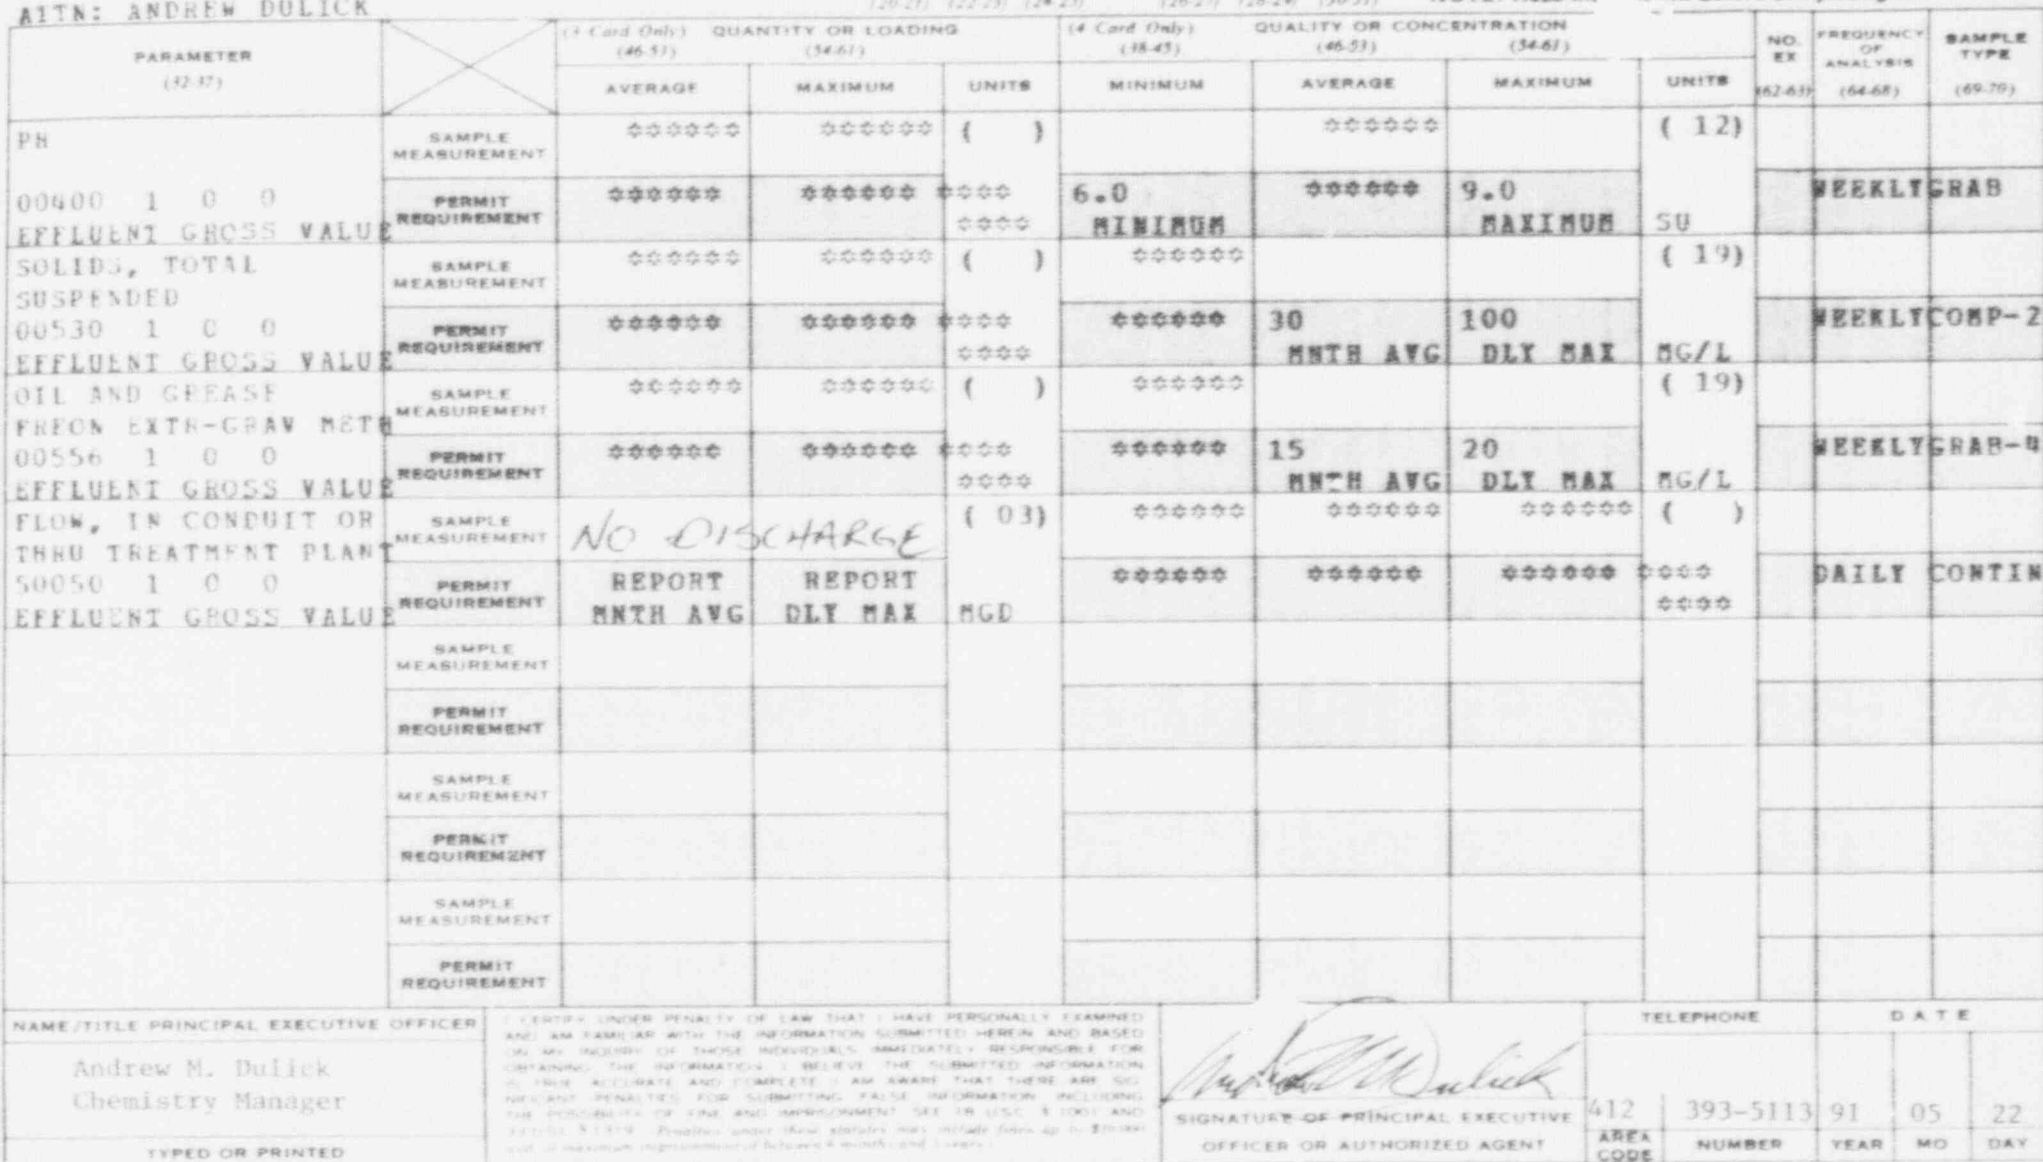 ATTN: ANDREW DULICK
PARAMETER
(32-37)
(3 Card Only) QUANTITY OR LOADING
(46-53) (54-61)
(4 Card Only) QUALITY OR CONCENTRATION
(38-45) (46-53) (54-61)
NO. EX
(62-63)
FREQUENCY OF ANALYSIS
(64-68)
SAMPLE TYPE
(69-70)
AVERAGE MAXIMUM UNITS MINIMUM AVERAGE MAXIMUM UNITS
PH
SAMPLE MEASUREMENT ****** ****** ( ) ****** ( 12)
00400 1 0 0
EFFLUENT GROSS VALUE
PERMIT REQUIREMENT ****** ****** **** 6.0 ****** 9.0 WEEKLY GRAB
**** MINIMUM MAXIMUM SU
SOLIDS, TOTAL
SUSPENDED
SAMPLE MEASUREMENT ****** ****** ( ) ****** ( 19)
00530 1 0 0
EFFLUENT GROSS VALUE
PERMIT REQUIREMENT ****** ****** **** ****** 30 100 WEEKLY COMP-2
**** MNTH AVG DLY MAX MG/L
OIL AND GREASE
FREON EXTR-GRAV METH
SAMPLE MEASUREMENT ****** ****** ( ) ****** ( 19)
00556 1 0 0
EFFLUENT GROSS VALUE
PERMIT REQUIREMENT ****** ****** **** ****** 15 20 WEEKLY GRAB-4
**** MNTH AVG DLY MAX MG/L
FLOW, IN CONDUIT OR
THRU TREATMENT PLANT
SAMPLE MEASUREMENT NO DISCHARGE ( 03) ****** ****** ****** ( )
50050 1 0 0
EFFLUENT GROSS VALUE
PERMIT REQUIREMENT REPORT REPORT ****** ****** ****** **** DAILY CONTIN
MNTH AVG DLY MAX MGD ****
SAMPLE MEASUREMENT
PERMIT REQUIREMENT
SAMPLE MEASUREMENT
PERMIT REQUIREMENT
SAMPLE MEASUREMENT
PERMIT REQUIREMENT
NAME/TITLE PRINCIPAL EXECUTIVE OFFICER
Andrew M. Dulick
Chemistry Manager
TYPED OR PRINTED
I CERTIFY UNDER PENALTY OF LAW THAT I HAVE PERSONALLY EXAMINED
AND AM FAMILIAR WITH THE INFORMATION SUBMITTED HEREIN AND BASED
ON MY INQUIRY OF THOSE INDIVIDUALS IMMEDIATELY RESPONSIBLE FOR
OBTAINING THE INFORMATION I BELIEVE THE SUBMITTED INFORMATION
IS TRUE ACCURATE AND COMPLETE I AM AWARE THAT THERE ARE SIG-
NIFICANT PENALTIES FOR SUBMITTING FALSE INFORMATION INCLUDING
THE POSSIBILITY OF FINE AND IMPRISONMENT SEE 18 U.S.C. § 1001 AND
Penalties under these statutes may include fines up to $10,000
Andrew M Dulick
SIGNATURE OF PRINCIPAL EXECUTIVE
OFFICER OR AUTHORIZED AGENT
TELEPHONE
412 393-5113
AREA CODE NUMBER
DATE
91 05 22
YEAR MO DAY